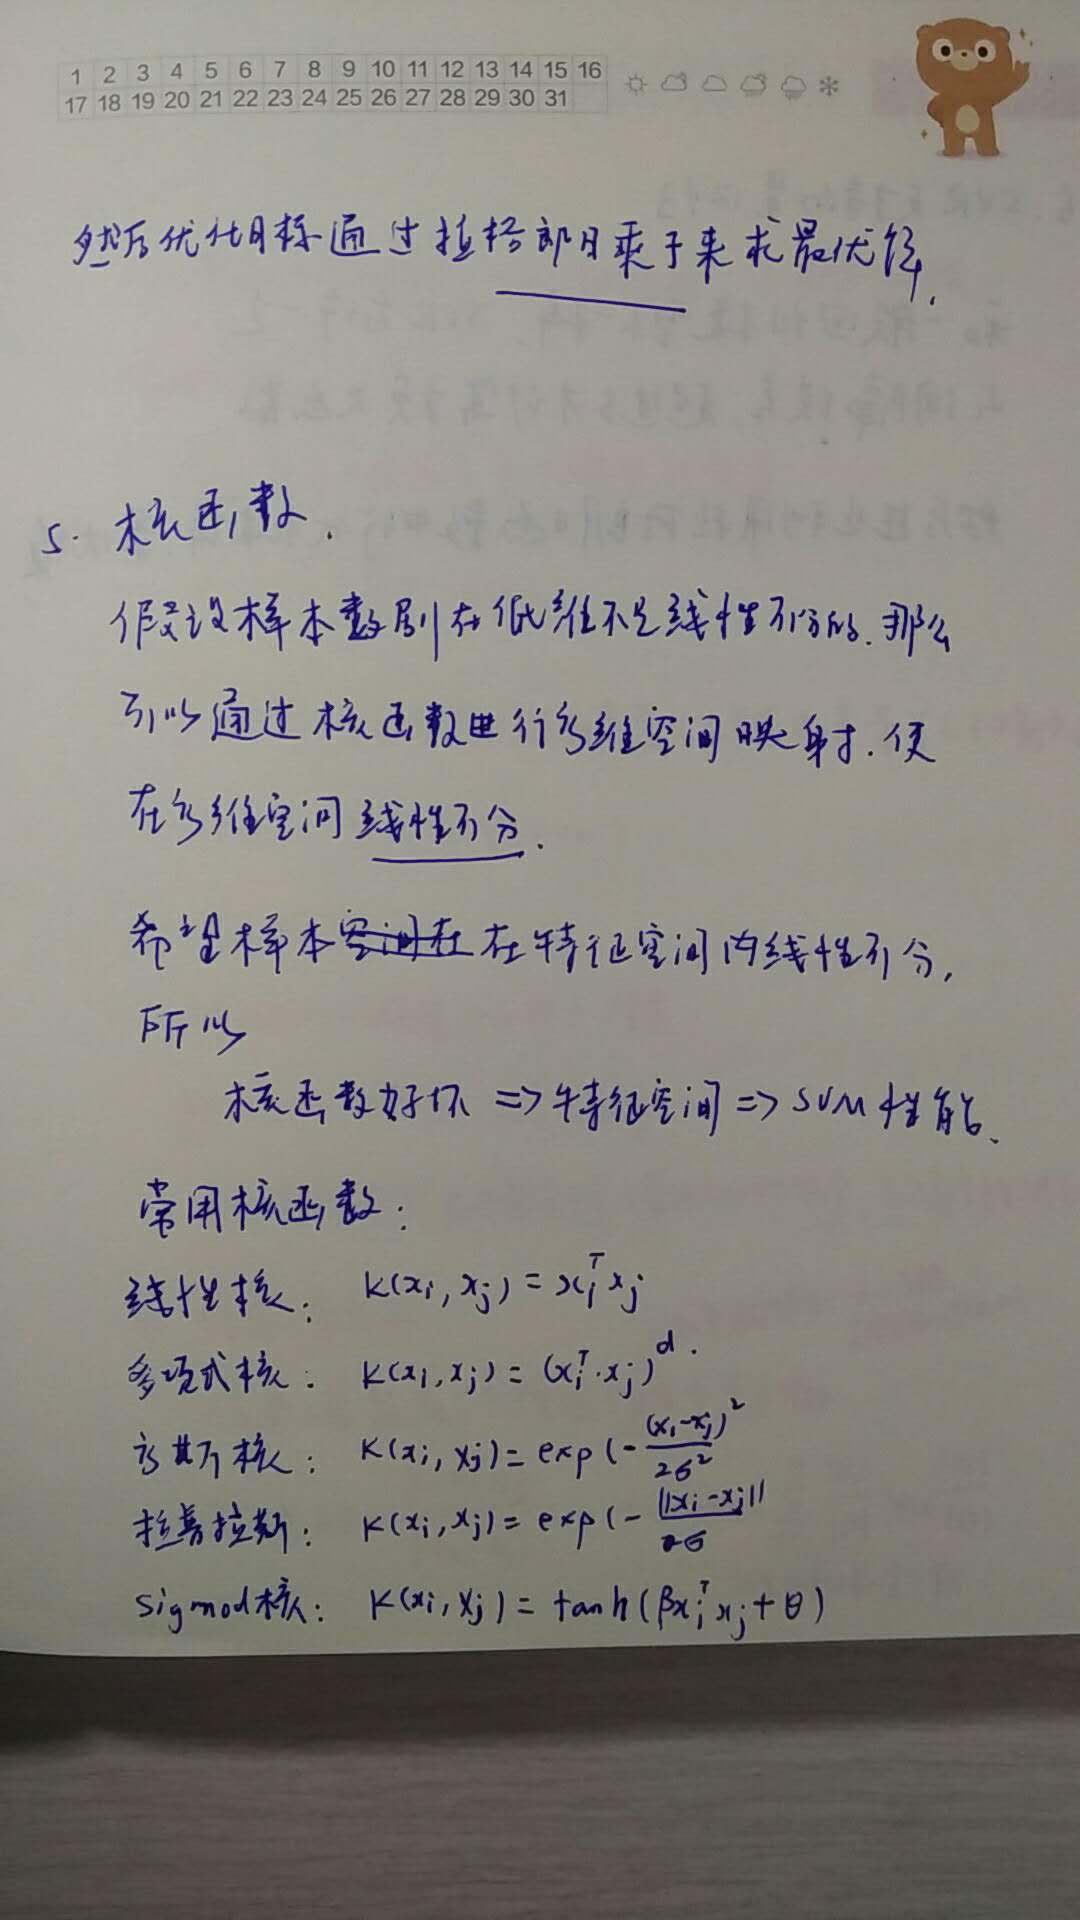 1 2 3 4 5 6 7 8 9 10 11 12 13 14 15 16
17 18 19 20 21 22 23 24 25 26 27 28 29 30 31
然后优化目标通过拉格郎日乘子来求最优解.
5. 核函数.
假设样本数别在低维不是线性可分的.那么
可以通过核函数进行高维空间映射.使
在高维空间线性可分.
希望样本空间在在特征空间内线性可分,
所以
核函数好坏 => 特征空间 => SVM性能.
常用核函数:
线性核: K(xi, xj) = xiᵀxj
多项式核: K(xi, xj) = (xiᵀ·xj)ᵈ.
高斯核: K(xi, xj) = exp(-(xi-xj)²/2σ²
拉普拉斯: K(xi, xj) = exp(-||xi-xj||/2σ
sigmod核: K(xi, xj) = tanh(βxiᵀxj+θ)